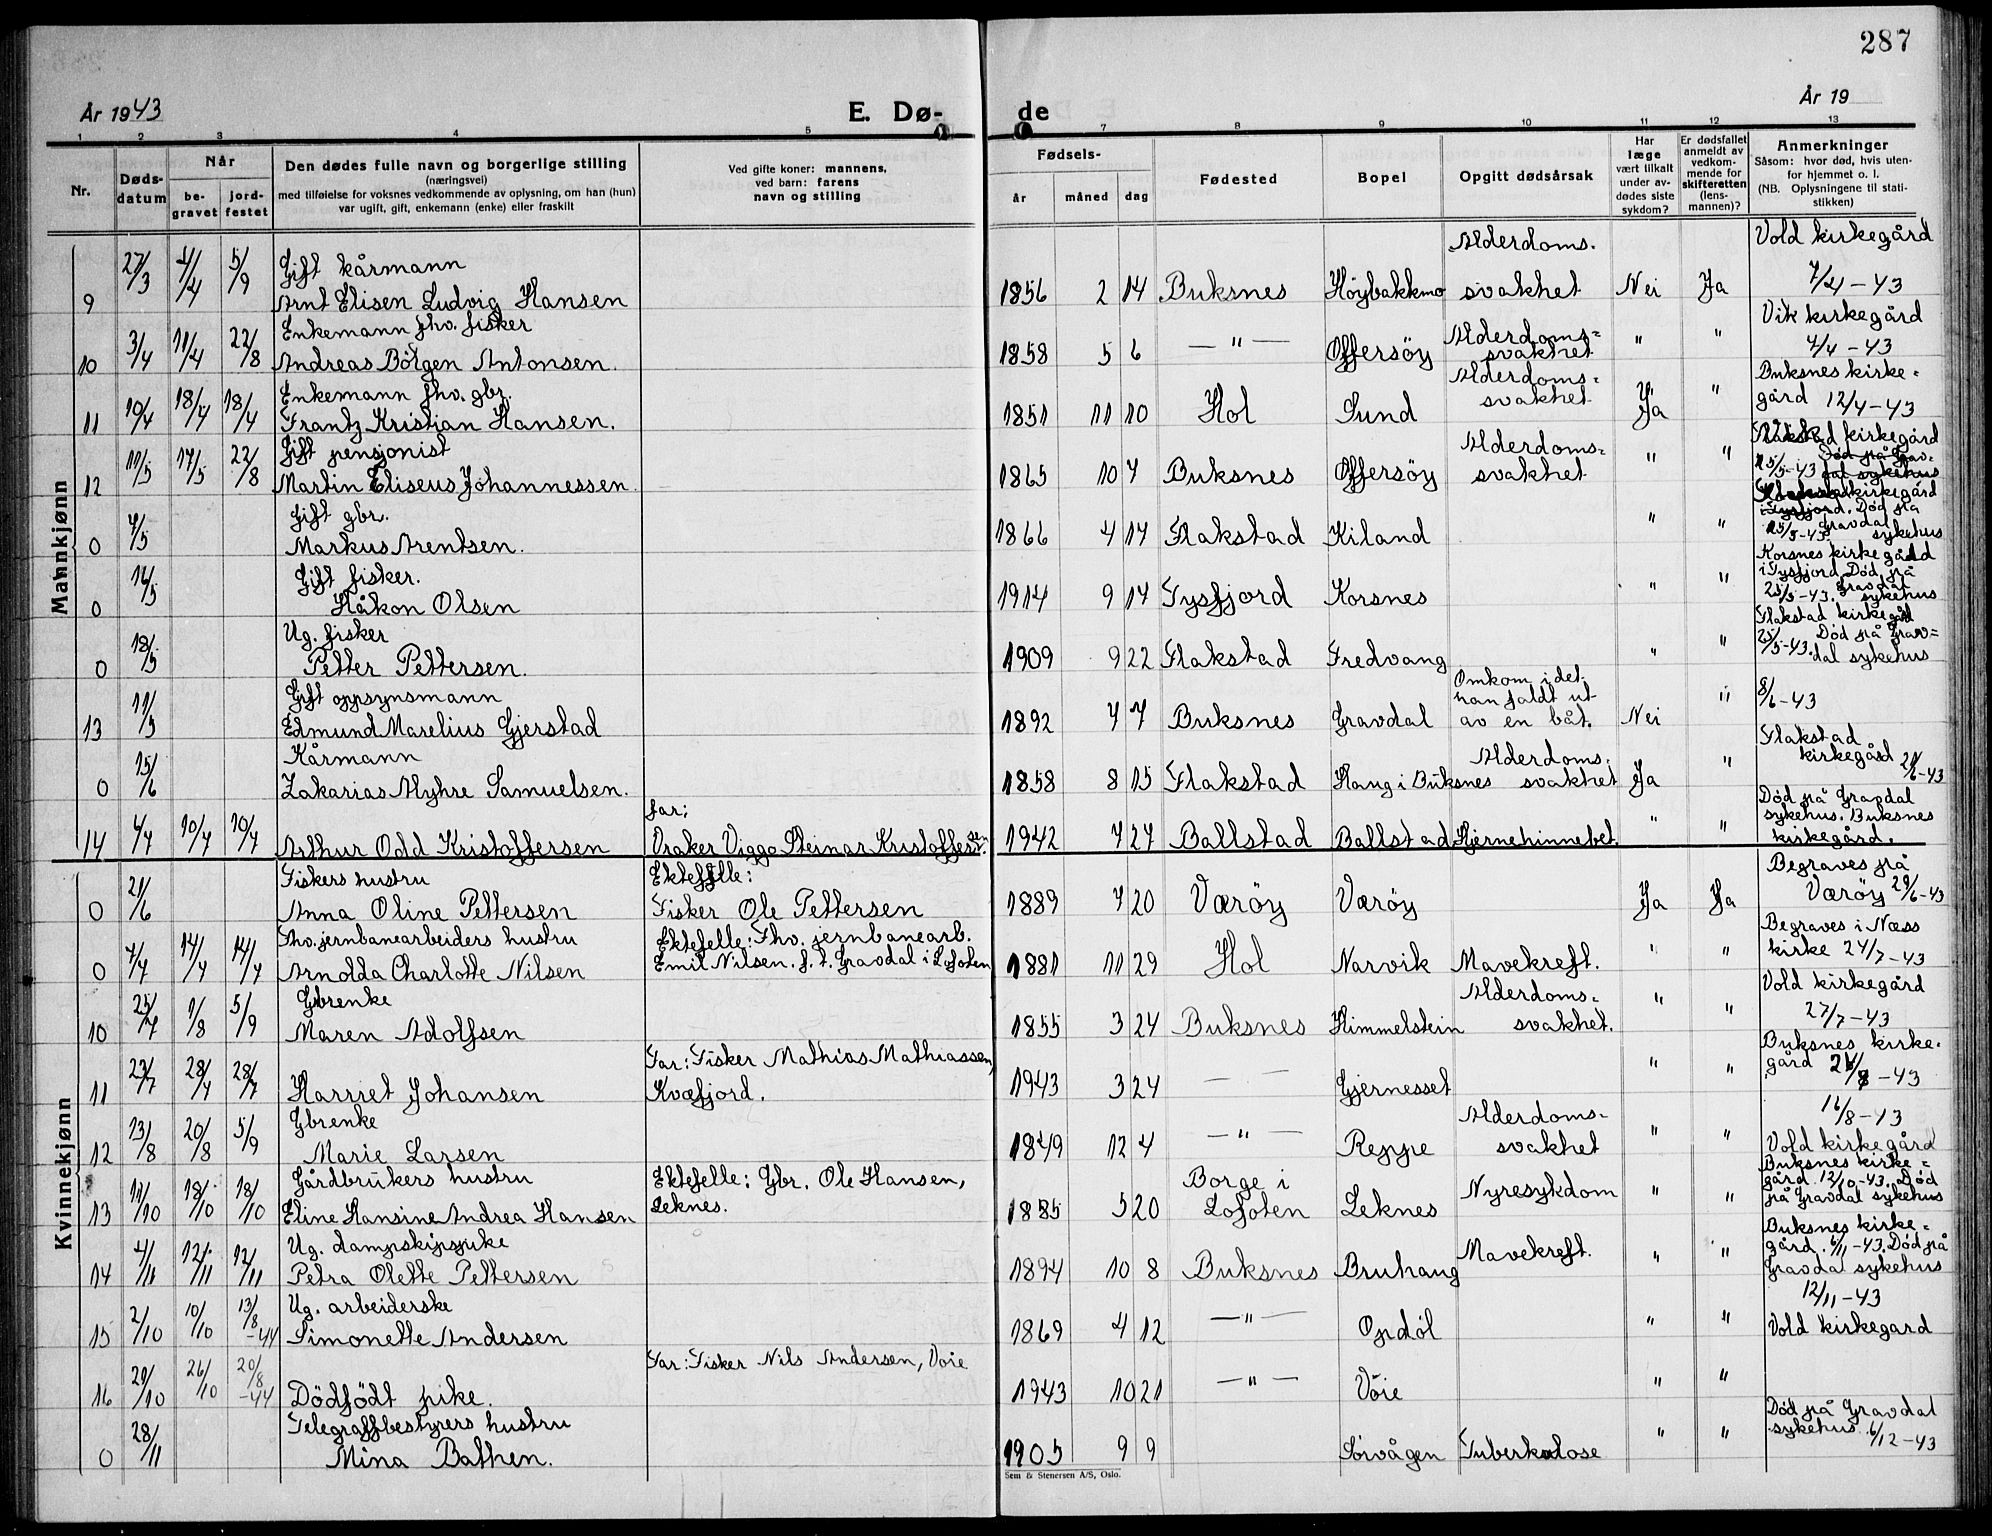 287
År 1943
E. Dø-
de
År 19
1 2 3 4 5 7 8 9 10 11 12 13
Nr.
Døds-
datum
Når
be-
gravet
jord-
festet
Den dødes fulle navn og borgerlige stilling
(næringsvei)
med tilføielse for voksnes vedkommende av oplysning, om han (hun)
var ugift, gift, enkemann (enke) eller fraskilt
Ved gifte koner: mannens,
ved barn: farens
navn og stilling
Fødsels-
år
måned
dag
Fødested
Bopel
Opgitt dødsårsak
Har
læge
vært tilkalt
under av-
dødes siste
sykdom?
Er dødsfallet
anmeldt av
vedkom-
mende for
skifteretten
(lens-
mannen)?
Anmerkninger
Såsom: hvor død, hvis uten-
for hjemmet o. l.
(NB. Oplysningene til stati-
stikken)
Mannkjønn
9 27/3 4/4 5/9 Gift kårmann
Arnt Elisen Ludvig Hansen
1856 2 14 Buksnes Höybakkmo Alderdoms.
svakhet Nei Ja Vold kirkegård
7/4 - 43
10 3/4 11/4 22/8 Enkemann fhv. fisker
Andreas Bölgen Antonsen.
1858 5 6 — " — Offersöy Alderdoms=
svakhet " " Vik kirkegård
4/4 - 43
11 10/4 18/4 18/4 Enkemann fhv. gbr.
Frantz Kristian Hansen.
1851 11 10 Hol Sund Alderdoms=
svakhet Ja " Buksnes kirke=
gård 12/4-43
12 11/5 17/5 22/8 Gift pensjonist
Martin Eliseus Johannessen.
1865 10 7 Buksnes Offersöy Alderdoms=
svakhet " " kirkegård
15/5-43 Död på Grav=
dal sykehus
0 7/5 Gift gbr.
Markus Arentsen.
1866 4 14 Flakstad Kiland " " kirkegård
i Tysfjord. Död på
Gravdal
sykehus
0 16/5 Gift fisker.
Håkon Olsen
1914 9 14 Tysfjord Korsnes " " Korsnes kirkegård
i Tysfjord Död på
25/5-43. Gravdal
sykehus
0 18/5 Ug. fisker
Petter Pettersen.
1909 9 22 Flakstad Fredvang " " Flakstad kirkegård
25/5-43. Död på Grav=
dal sykehus
13 11/5 Gift oppsynsmann
Edmund Marelius Gjerstad
1892 4 7 Buksnes Gravdal Omkom i det
han faldt ut
av en båt. Nei " 8/6-43
0 15/6 Kårmann
Zakarias Myhre Samuelsen.
1858 8 15 Flakstad Haug i Buksnes Alderdoms.
svakhet Ja " Flakstad
kirkegård 21/6-43
14 4/7 10/7 10/7 Arthur Odd Kristoffersen
far:
Vraker Viggo Steinar Kristoffersen.
1942 7 27 Ballstad Ballstad Hjernehinnebet. " " Död på Gravdal
sykehus. Buksnes
kirkegård.
Kvinnekjønn
0 21/6 Fiskers hustru
Anna Oline Pettersen
Ektefelle:
Fisker Ole Pettersen
1889 7 20 Væröy Væröy Ja Ja Begraves på
Væröy 29/6-43
0 7/7 14/7 14/7 Fhv. jernbanearbeiders hustru
Arnolda Charlotte Nilsen
Ektefelle: Fhv. jernbanearb.
Emil Nilsen. f. t. Gravdal i Lofoten
1881 11 29 Hol Narvik Mavekreft. " " Begraves i Næss
kirke 24/7-43
10 25/7 1/8 5/9 Gbrenke
Maren Adolfsen
1855 3 24 Buksnes Himmelstein Alderdoms=
svakhet. " " Vold kirkegård
27/7-43
11 23/7 28/7 28/7 Harriet Johansen
Far: Fisker Mathias Mathiassen,
Kvæfjord.
1943 3 24 — — Gjernesset " " Buksnes kirke.
gård
12 13/8 20/8 5/9 Gbrenke
Marie Larsen
1849 12 4 — " — Reppe Alderdoms=
svakhet " " 16/8-43
Vold kirkegård
13 11/10 18/10 18/10 Gårdbrukers hustru
Eline Hansine Andrea Hansen
Ektefelle: Gbr. Ole Hansen,
Leknes.
1885 5 20 Borge i
Lofoten Leknes Nyresykdom " " Buksnes kirke=
gård 12/10-43. Död
på Gravdal sykehus
14 4/11 12/11 12/11 Ug. dampskipspike
Petra Olette Pettersen
1894 10 8 Buksnes Bruhaug Mavekreft. " " Buksnes kirke=
gård. 6/11-43. Död på
Gravdal sykehus
15 2/10 10/10 13/8-44 Ug. arbeiderske
Simonette Andersen
1869 4 12 — " — Opdöl " " 12/11-43
Vold kirkegard
16 21/10 26/10 20/8-44 Dödfödt pike.
Far: Fisker Nils Andersen, Voie
1943 10 21 — " — Voie " "
0 28/11 Telegraffbestyrers hustru
Mina Bathen.
1905 9 9 Sörvågen Tuberkolose " " Död på Gravdal
sykehus 6/12-43
Sem & Stenersen A/S, Oslo.